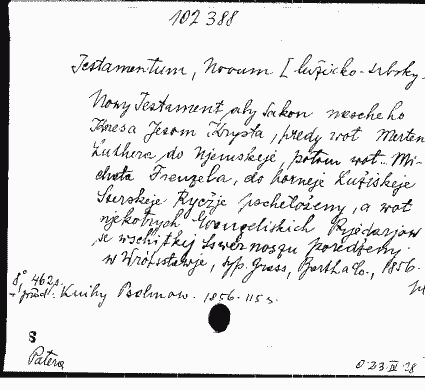 102388
Testamentum, Novum [lužicko-srbsky
Nowy Testament aby Sakon nascheho
Knesa Jesom Krysta, predy wot Merten
Luthera do Njemskeje, potom wot Mi-
chała Frenzela, do horneje Lužiskeje
Szerskeje Ryczje pschełożeny, a wot
njekotrych Ewangeliskich Ryczarjow
se wschitkej Szwernoszu poredżeny
w Wrótsławje, typ. Grass, Barth a Co., 1856.
8° 462 s.
- příd. Knihy Psalmow. 1856. 115 s.
S
Patera
0.23.IV.38